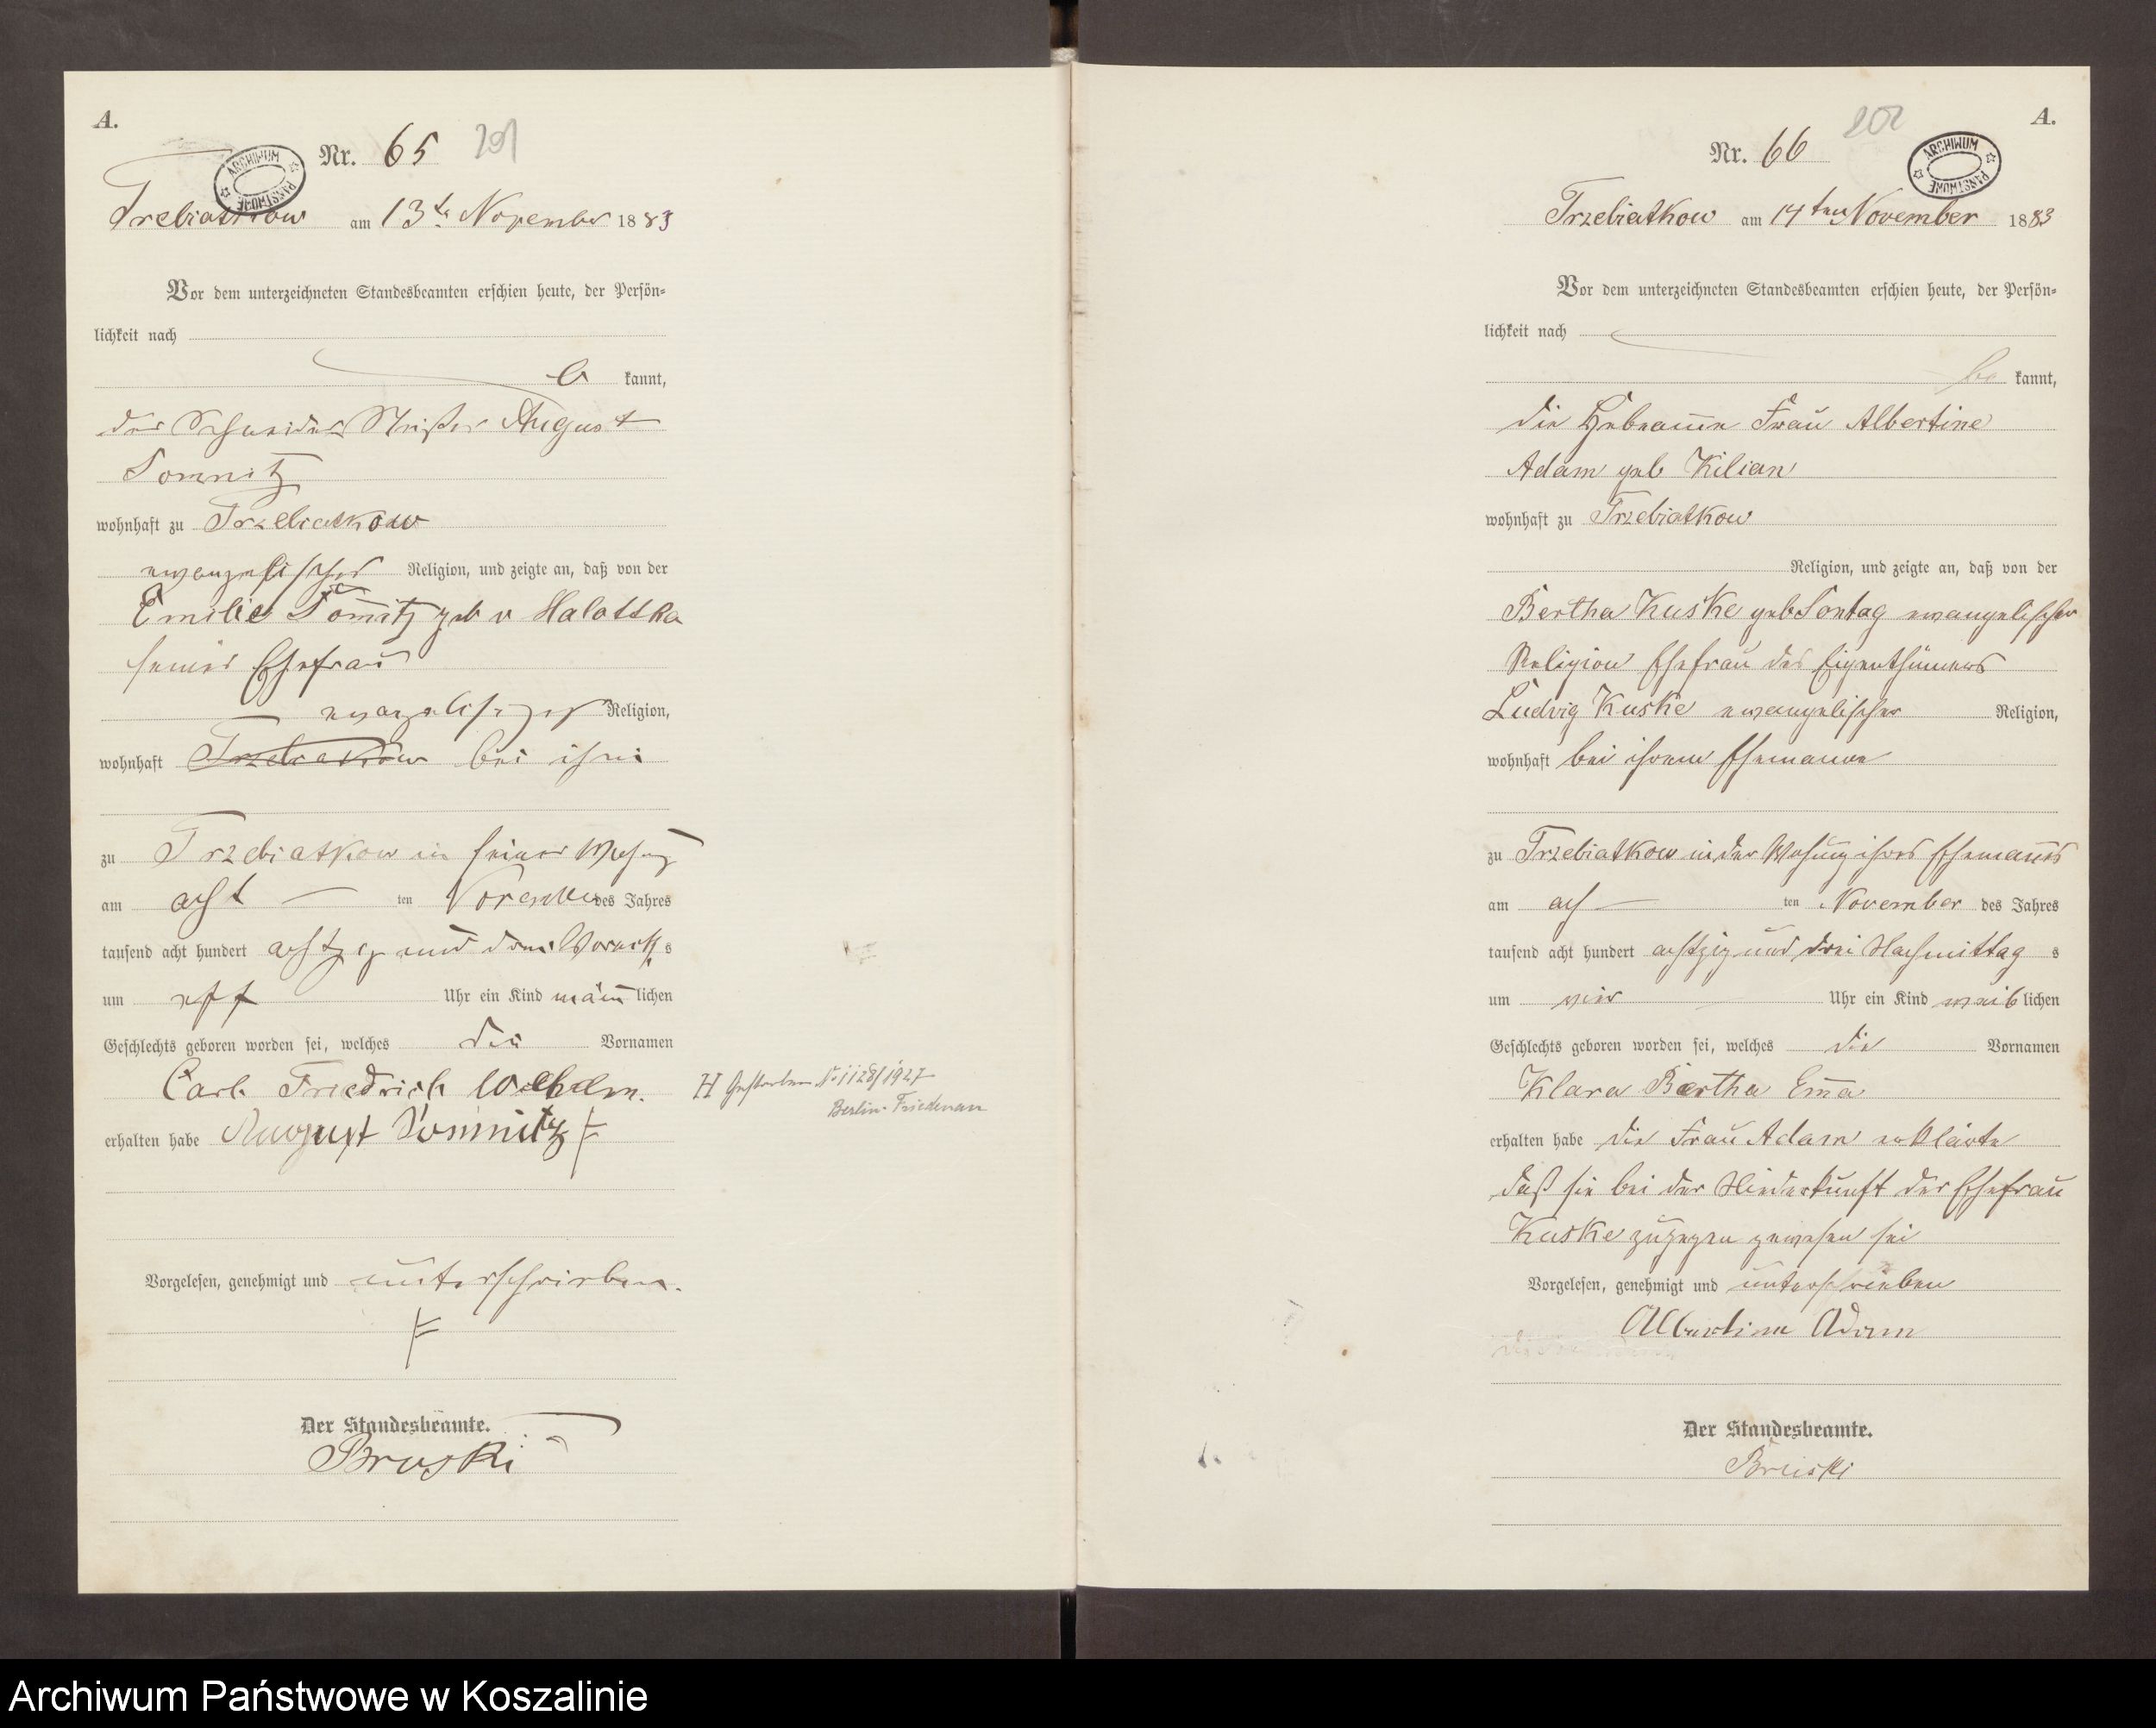 A.
Nr. 65
ARCHIWUM PAŃSTWOWE
Trebiatkow am 13te November 1883
Vor dem unterzeichneten Standesbeamten erschien heute, der Persön=
lichkeit nach
b kannt,
der Schneider Meister August
Somnitz
wohnhaft zu Trzebiatkow
evangelischer Religion, und zeigte an, daß von der
Emilie Som̄itz geb v Halattka
seiner Ehefrau
evangelischer Religion,
wohnhaft Trzebiatkow bei ihm
zu Trzebiatkow in seiner Wohnung
am acht ten November des Jahres
tausend acht hundert achtzig und drei Vormittags
um elf Uhr ein Kind män̄lichen
Geschlechts geboren worden sei, welches die Vornamen
Carl Friedrich Wilhelm.
erhalten habe August Somnitz
Vorgelesen, genehmigt und unterschrieben.
Der Standesbeamte.
Bruski
H Gestorben No 1128/1927
Berlin-Friedenau
A.
202
Nr. 66
ARCHIWUM PAŃSTWOWE
Trzebiatkow am 14ten November 1883
Vor dem unterzeichneten Standesbeamten erschien heute, der Persön=
lichkeit nach
be kannt,
die Hebeam̄e Frau Albertine
Adam geb Kilian
wohnhaft zu Trzebiatkow
Religion, und zeigte an, daß von der
Bertha Kuske geb Sontag evangelischer
Religion Ehefrau des Eigenthümers
Ludvig Kuske evangelischer Religion,
wohnhaft bei ihrem Ehemanne
zu Trzebiatkow in der Wohung ihres Ehemanns
am ach ten November des Jahres
tausend acht hundert achtzig und drei Nachmittag s
um vier Uhr ein Kind weib lichen
Geschlechts geboren worden sei, welches die Vornamen
Klara Bertha Em̄a
erhalten habe die Frau Adam erklärte
daß sie bei der Niederkunft der Ehefrau
Kuske zugegen gewesen sei
Vorgelesen, genehmigt und unterschrieben
Albertine Adam
Der Standesbeamte.
Bruski
Archiwum Państwowe w Koszalinie